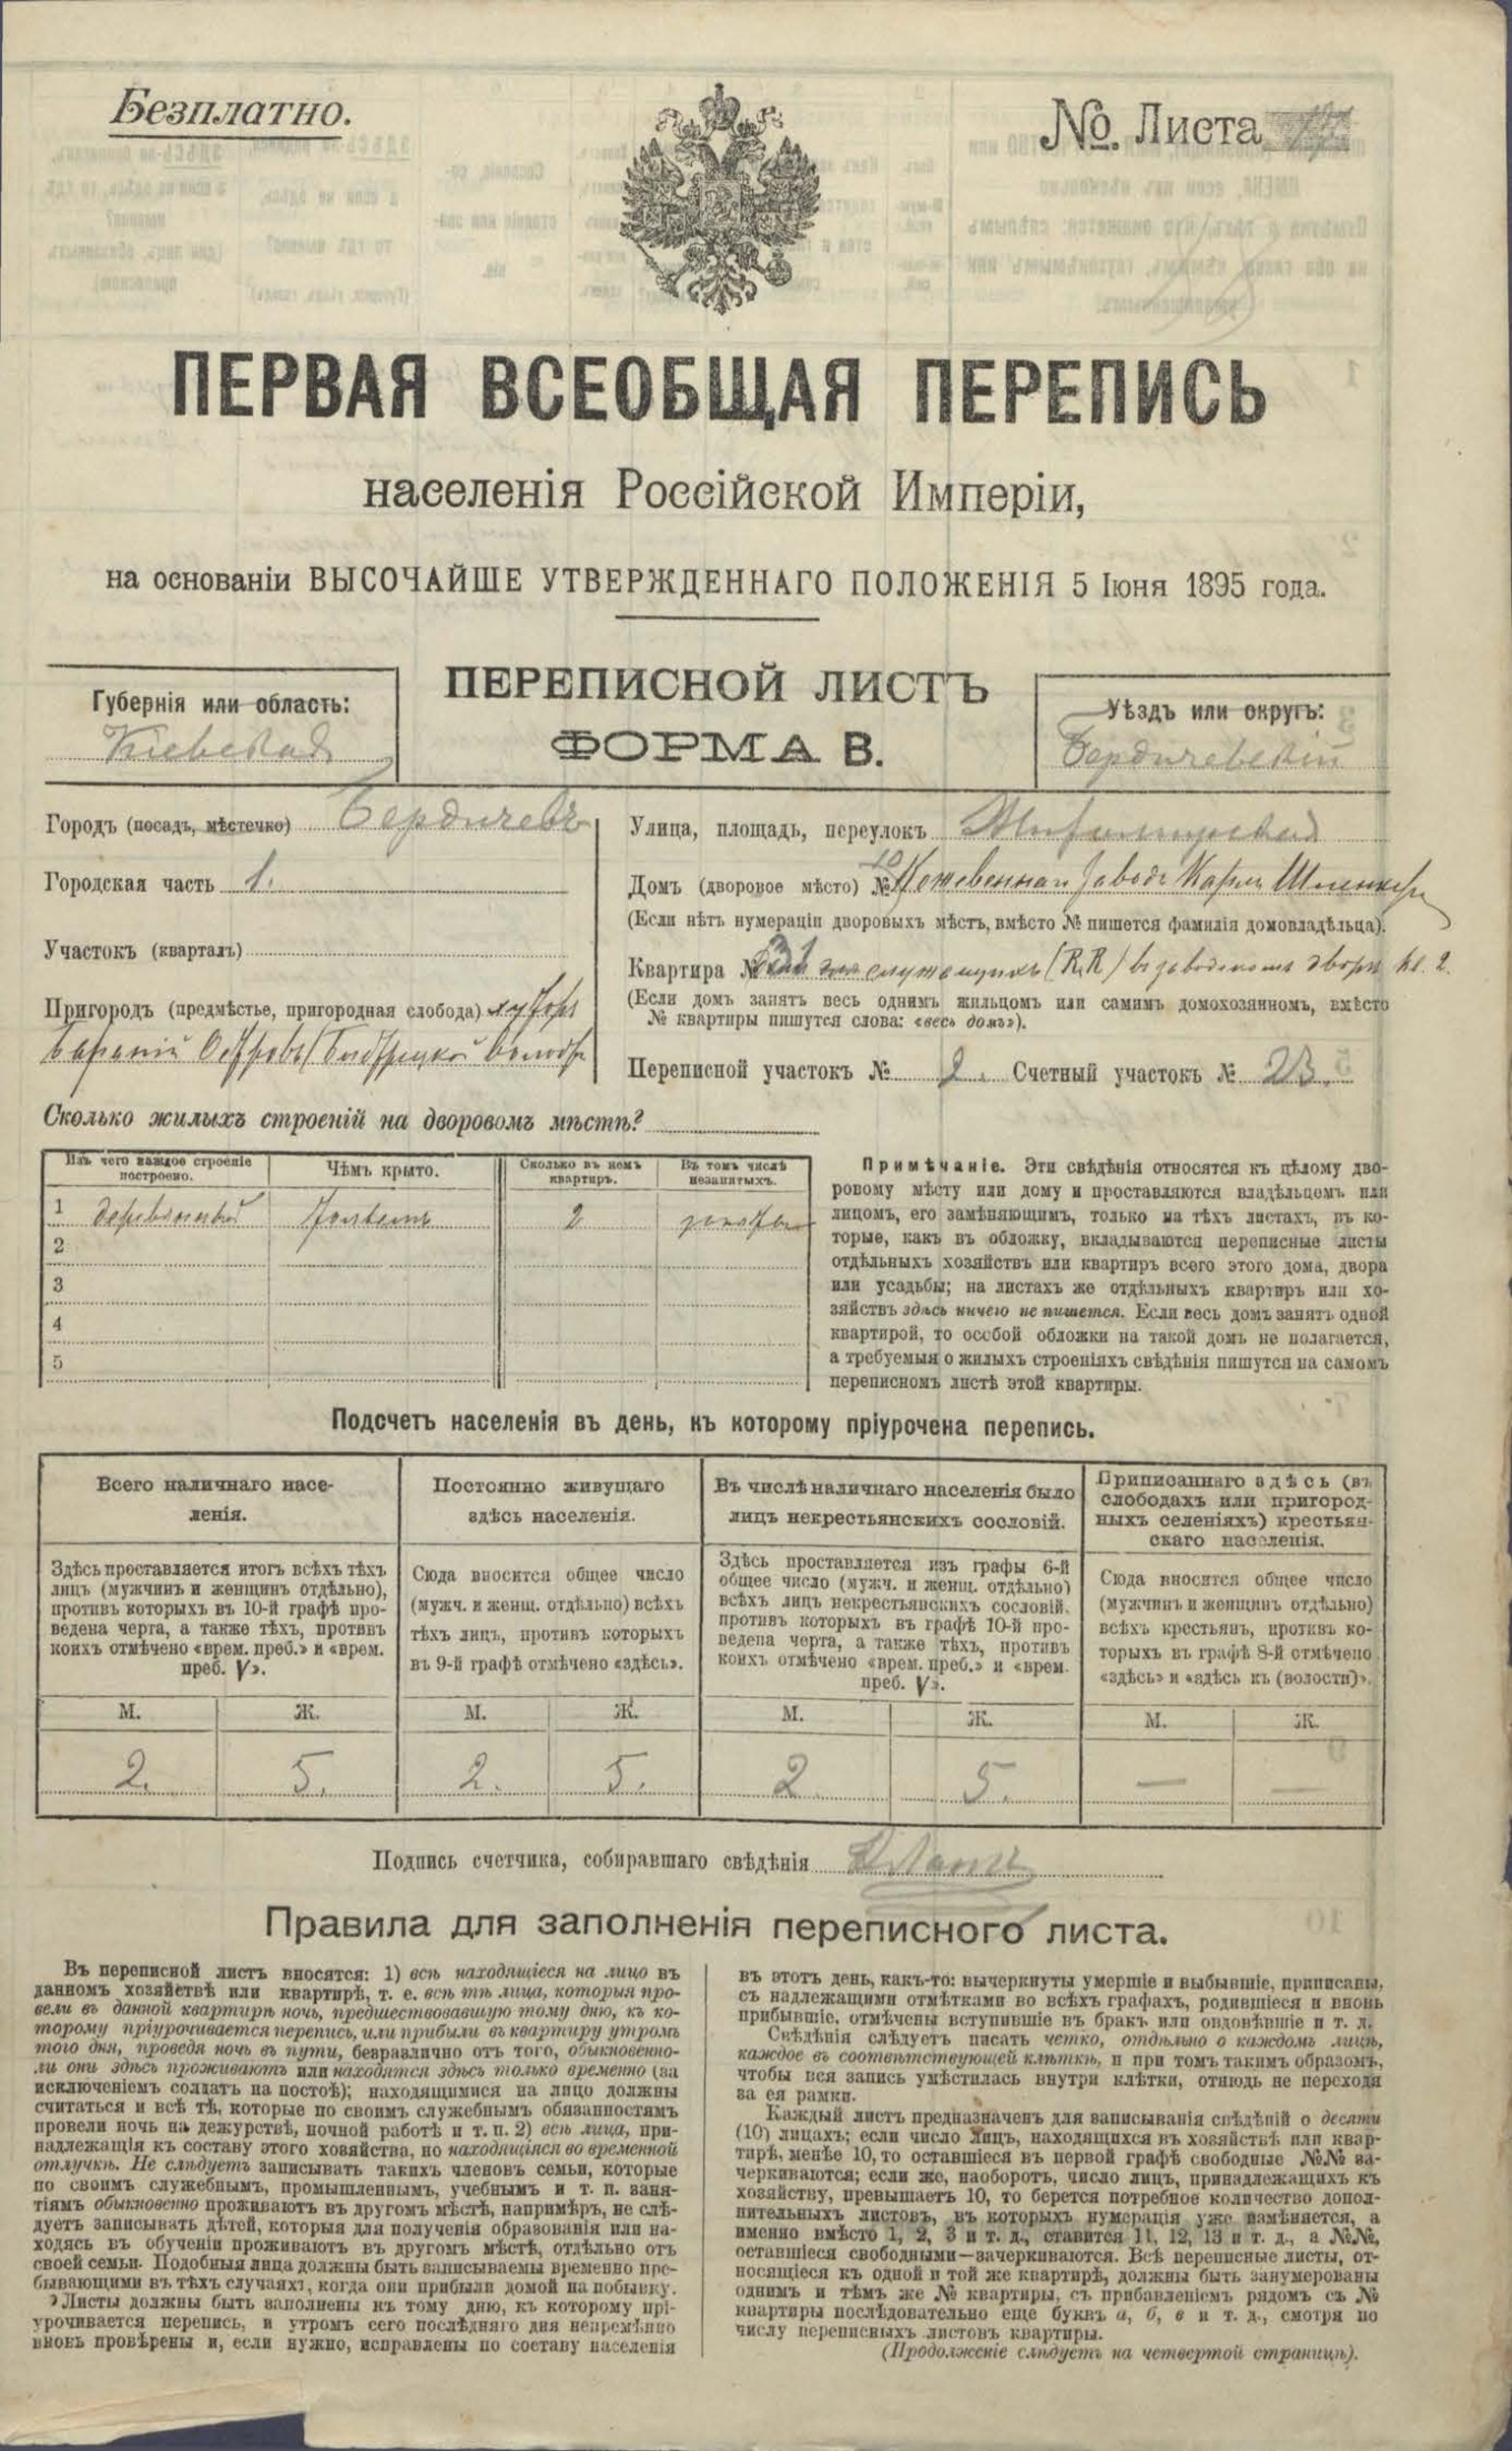 Безплатно.
№. Листа
ПЕРВАЯ ВСЕОБЩАЯ ПЕРЕПИСЬ
населенія Россійской Имперіи,
на основаніи ВЫСОЧАЙШЕ УТВЕРЖДЕННАГО ПОЛОЖЕНІЯ 5 Іюня 1895 года.
Губернія или область:
Кіевская
ПЕРЕПИСНОЙ ЛИСТЪ
ФОРМА В.
Уѣздъ или округъ:
Бердичевскій
Городъ (посадъ, мѣстечко) Бердичевъ
Городская часть 1.
Участокъ (кварталъ)
Пригородъ (предмѣстье, пригородная слобода) хуторъ
Островъ
Улица, площадь, переулокъ Житомирская
Домъ (дворовое мѣсто) № 10 Кожевенный заводъ Карла Шленкера
(Если нѣтъ нумераціи дворовыхъ мѣстъ, вмѣсто № пишется фамилія домовладѣльца).
Квартира № 31 для служащихъ (R.R) въ заводскомъ дворѣ кв. 2.
(Если домъ занятъ весь однимъ жильцомъ или самимъ домохозяиномъ, вмѣсто
№ квартиры пишутся слова: «весь домъ»).
Переписной участокъ № 2. Счетный участокъ № 23.
Сколько жилыхъ строеній на дворовомъ мѣстѣ?
Изъ чего каждое строеніе построено.
Чѣмъ крыто.
Сколько въ немъ квартиръ.
Въ томъ числѣ незанятыхъ.
1 деревянный 2
2
3
4
5
Примѣчаніе. Эти свѣдѣнія относятся къ цѣлому дво-
ровому мѣсту или дому и проставляются владѣльцемъ или
лицомъ, его замѣняющимъ, только на тѣхъ листахъ, въ ко-
торые, какъ въ обложку, вкладываются переписные листы
отдѣльныхъ хозяйствъ или квартиръ всего этого дома, двора
или усадьбы; на листахъ же отдѣльныхъ квартиръ или хо-
зяйствъ здѣсь ничего не пишется. Если весь домъ занятъ одной
квартирой, то особой обложки на такой домъ не полагается,
а требуемыя о жилыхъ строеніяхъ свѣдѣнія пишутся на самомъ
переписномъ листѣ этой квартиры.
Подсчетъ населенія въ день, къ которому пріурочена перепись.
Всего наличнаго насе-
ленія.
Здѣсь проставляется итогъ всѣхъ тѣхъ
лицъ (мужчинъ и женщинъ отдѣльно),
противъ которыхъ въ 10-й графѣ про-
ведена черта, а также тѣхъ, противъ
коихъ отмѣчено «врем. преб.» и «врем.
преб. V».
Постоянно живущаго
здѣсь населенія.
Сюда вносится общее число
(мужч. и женщ. отдѣльно) всѣхъ
тѣхъ лицъ, противъ которыхъ
въ 9-й графѣ отмѣчено «здѣсь».
Въ числѣ наличнаго населенія было
лицъ некрестьянскихъ сословій.
Здѣсь проставляется изъ графы 6-й
общее число (мужч. и женщ. отдѣльно)
всѣхъ лицъ некрестьянскихъ сословій,
противъ которыхъ въ графѣ 10-й про-
ведена черта, а также тѣхъ, противъ
коихъ отмѣчено «врем. преб.» и «врем.
преб. V».
Приписаннаго здѣсь (въ
слободахъ или пригород-
ныхъ селеніяхъ) крестьян-
скаго населенія.
Сюда вносится общее число
(мужчинъ и женщинъ отдѣльно)
всѣхъ крестьянъ, противъ ко-
торыхъ въ графѣ 8-й отмѣчено
«здѣсь» и «здѣсь къ (волости)».
М. Ж. М. Ж. М. Ж. М. Ж.
2. 5. 2. 5. 2 5. — —
Подпись счетчика, собиравшаго свѣдѣнія
Правила для заполненія переписного листа.
Въ переписной листъ вносятся: 1) всѣ находящіеся на лицо въ
данномъ хозяйствѣ или квартирѣ, т. е. всѣ тѣ лица, которыя про-
вели въ данной квартирѣ ночь, предшествовавшую тому дню, къ ко-
торому пріурочивается перепись, или прибыли въ квартиру утромъ
того дня, проведя ночь въ пути, безразлично отъ того, обыкновенно-
ли они здѣсь проживаютъ или находятся здѣсь только временно (за
исключеніемъ солдатъ на постоѣ); находящимися на лицо должны
считаться и всѣ тѣ, которые по своимъ служебнымъ обязанностямъ
провели ночь на дежурствѣ, ночной работѣ и т. п. 2) всѣ лица, при-
надлежащія къ составу этого хозяйства, но находящіяся во временной
отлучкѣ. Не слѣдуетъ записывать такихъ членовъ семьи, которые
по своимъ служебнымъ, промышленнымъ, учебнымъ и т. п. заня-
тіямъ обыкновенно проживаютъ въ другомъ мѣстѣ, напримѣръ, не слѣ-
дуетъ записывать дѣтей, которыя для полученія образованія или на-
ходясь въ обученіи проживаютъ въ другомъ мѣстѣ, отдѣльно отъ
своей семьи. Подобныя лица должны быть записываемы временно пре-
бывающими въ тѣхъ случаяхъ, когда они прибыли домой на побывку.
Листы должны быть заполнены къ тому дню, къ которому прі-
урочивается перепись, и утромъ сего послѣдняго дня непремѣнно
вновь провѣрены и, если нужно, исправлены по составу населенія
въ этотъ день, какъ-то: вычеркнуты умершіе и выбывшіе, приписаны,
съ надлежащими отмѣтками во всѣхъ графахъ, родившіеся и вновь
прибывшіе, отмѣчены вступившіе въ бракъ или овдовѣвшіе и т. д.
Свѣдѣнія слѣдуетъ писать четко, отдѣльно о каждомъ лицѣ,
каждое въ соотвѣтствующей клѣткѣ, и при томъ такимъ образомъ,
чтобы вся запись умѣстилась внутри клѣтки, отнюдь не переходя
за ея рамки.
Каждый листъ предназначенъ для записыванія свѣдѣній о десяти
(10) лицахъ; если число лицъ, находящихся въ хозяйствѣ или квар-
тирѣ, менѣе 10, то оставшіеся въ первой графѣ свободные №№ за-
черкиваются; если же, наоборотъ, число лицъ, принадлежащихъ къ
хозяйству, превышаетъ 10, то берется потребное количество допол-
нительныхъ листовъ, въ которыхъ нумерація уже измѣняется, а
именно вмѣсто 1, 2, 3 и т. д., ставится 11, 12, 13 и т. д., а №№,
оставшіеся свободными—зачеркиваются. Всѣ переписные листы, от-
носящіеся къ одной и той же квартирѣ, должны быть занумерованы
однимъ и тѣмъ же № квартиры, съ прибавленіемъ рядомъ съ №
квартиры послѣдовательно еще буквъ а, б, в и т. д., смотря по
числу переписныхъ листовъ квартиры.
(Продолженіе слѣдуетъ на четвертой страницѣ).